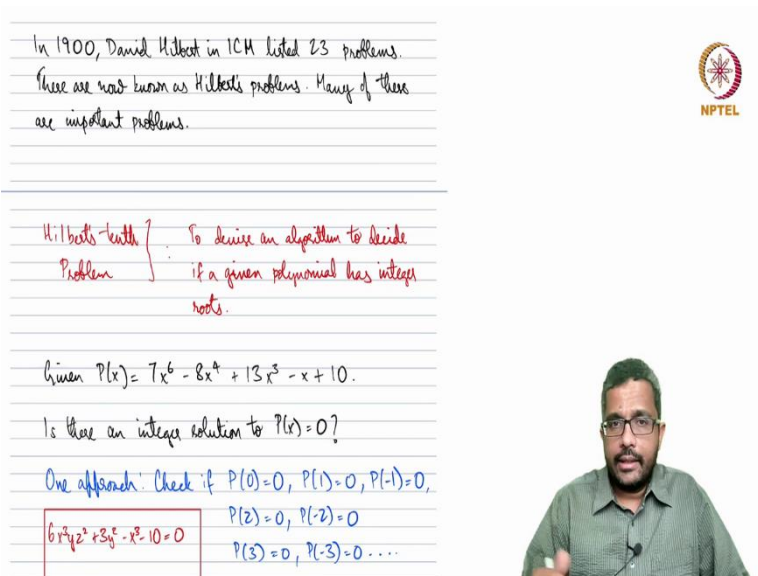 In 1900, David Hilbert in ICM listed 23 problems.
These are now known as Hilbert's problems. Many of these
are important problems.
NPTEL
Hilbert's tenth
Problem
: To devise an algorithm to decide
if a given polynomial has integer
roots.
Given P(x) = 7x⁶ - 8x⁴ + 13x³ - x + 10.
Is there an integer solution to P(x) = 0?
One approach: Check if P(0)=0, P(1)=0, P(-1)=0,
P(2)=0, P(-2)=0
P(3)=0, P(-3)=0 ....
6x³yz² + 3y² - x³ - 10 = 0